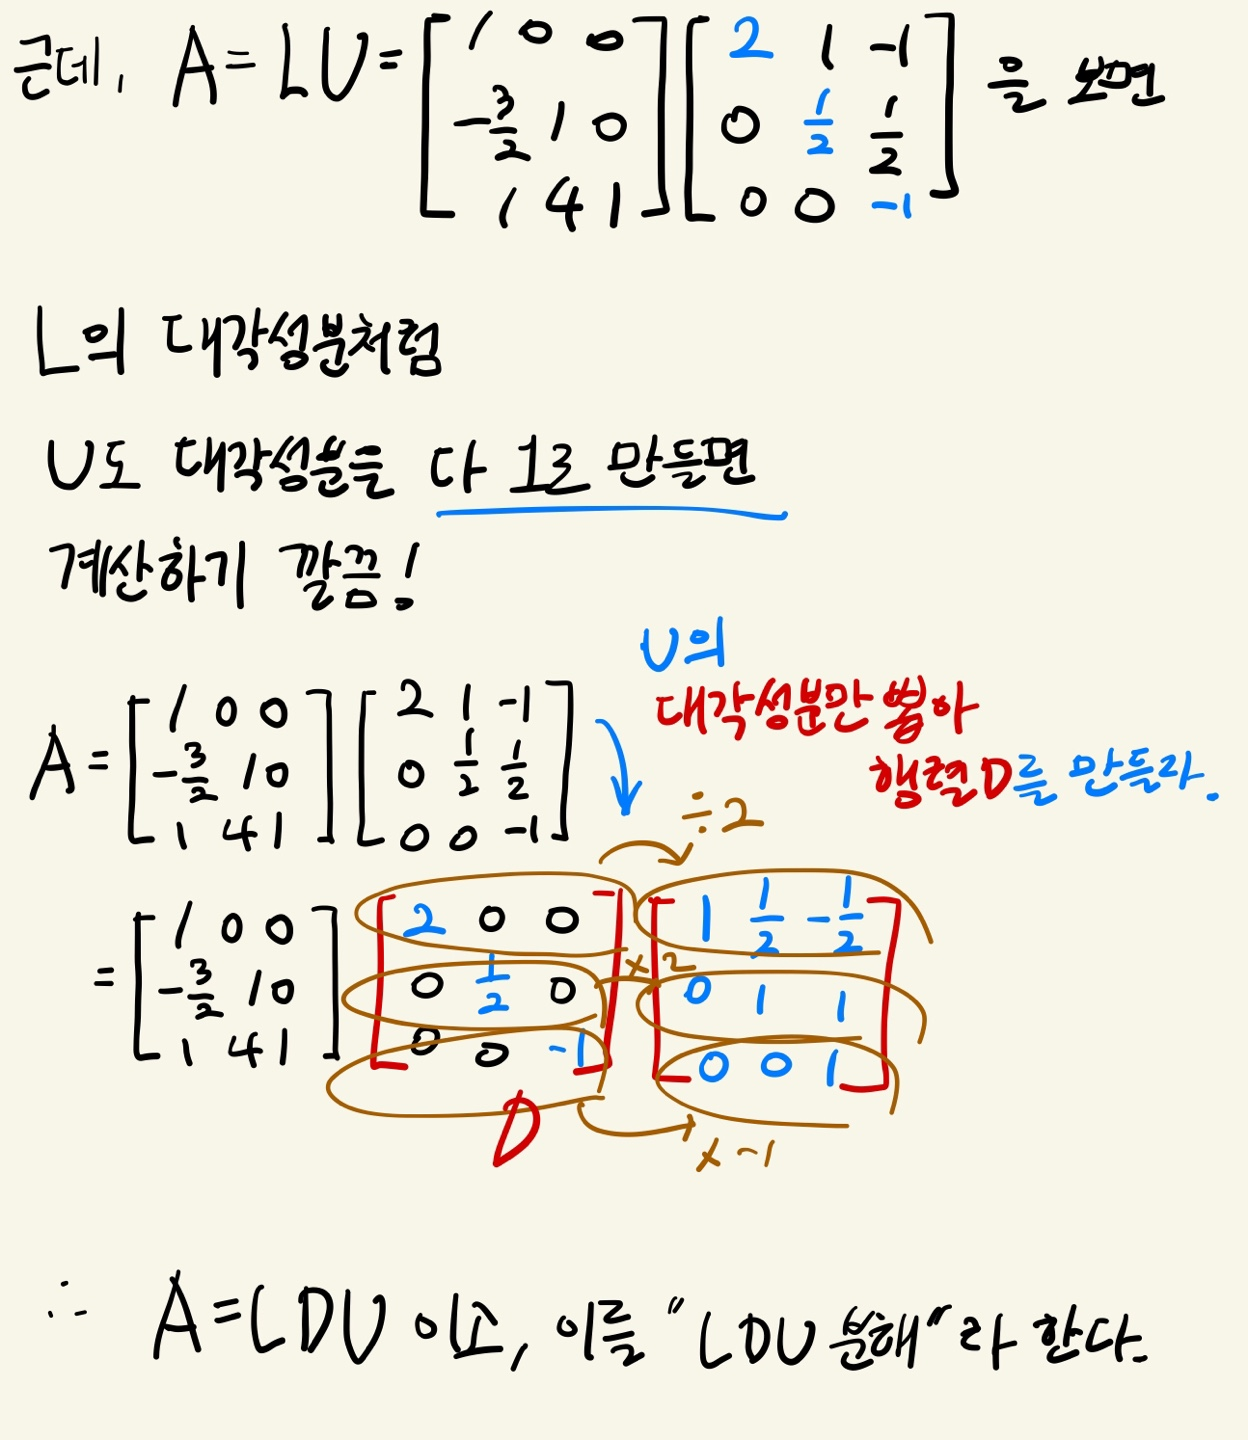 근데, A = LU = [1 0 0; -3/2 1 0; 1 4 1] [2 1 -1; 0 1/2 1/2; 0 0 -1] 을 보면
L의 대각성분처럼
U도 대각성분을 다 1로 만들면
계산하기 깔끔!
U의
대각성분만 뽑아
행렬D를 만들라.
A = [1 0 0; -3/2 1 0; 1 4 1] [2 1 -1; 0 1/2 1/2; 0 0 -1]
÷2
= [1 0 0; -3/2 1 0; 1 4 1] [2 0 0; 0 1/2 0; 0 0 -1] [1 1/2 -1/2; 0 1 1; 0 0 1]
×2
D
× -1
∴ A = LDU 이고, 이를 "LDU 분해"라 한다.